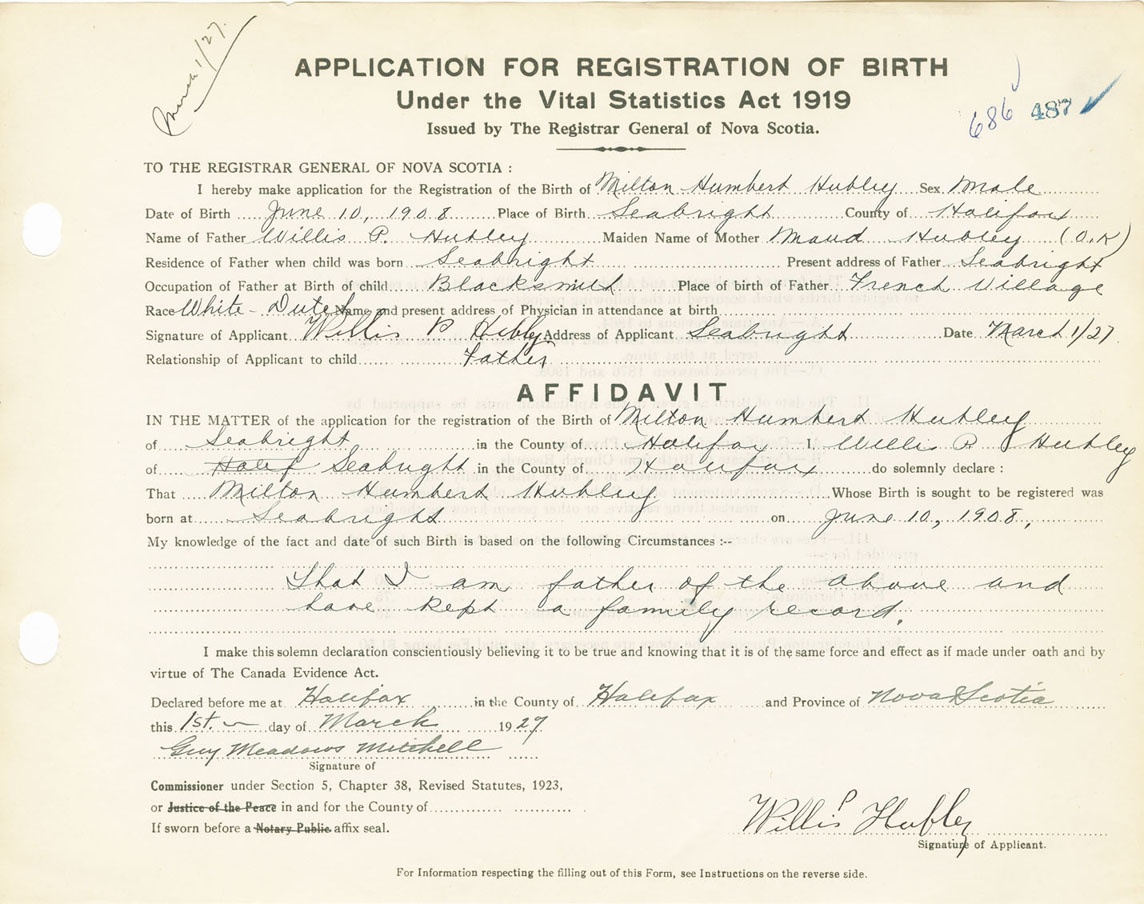 March 1/27.
APPLICATION FOR REGISTRATION OF BIRTH
Under the Vital Statistics Act 1919
686 487
Issued by The Registrar General of Nova Scotia.
TO THE REGISTRAR GENERAL OF NOVA SCOTIA :
I hereby make application for the Registration of the Birth of Milton Humbert Hubley Sex Male
Date of Birth June 10, 1908 Place of Birth Seabright County of Halifax
Name of Father Willis P. Hubley Maiden Name of Mother Maud Hubley (O.K)
Residence of Father when child was born Seabright Present address of Father Seabright
Occupation of Father at Birth of child Blacksmith Place of birth of Father French Village
Race White - Dutch Name and present address of Physician in attendance at birth
Signature of Applicant Willis P Hubley Address of Applicant Seabright Date March 1/27
Relationship of Applicant to child Father
AFFIDAVIT
IN THE MATTER of the application for the registration of the Birth of Milton Humbert Hubley
of Seabright in the County of Halifax I, Willis P Hubley
of Halif Seabright in the County of Halifax do solemnly declare :
That Milton Humbert Hubley Whose Birth is sought to be registered was
born at Seabright on June 10, 1908,
My knowledge of the fact and date of such Birth is based on the following Circumstances :--
That I am father of the above and
have kept a family record.
I make this solemn declaration conscientiously believing it to be true and knowing that it is of the same force and effect as if made under oath and by
virtue of The Canada Evidence Act.
Declared before me at Halifax in the County of Halifax and Province of Nova Scotia
this 1st. day of March 1927
Guy Meadows Mitchell
Signature of
Commissioner under Section 5, Chapter 38, Revised Statutes, 1923,
or Justice of the Peace in and for the County of
If sworn before a Notary Public affix seal.
Willis P Hubley
Signature of Applicant.
For Information respecting the filling out of this Form, see Instructions on the reverse side.